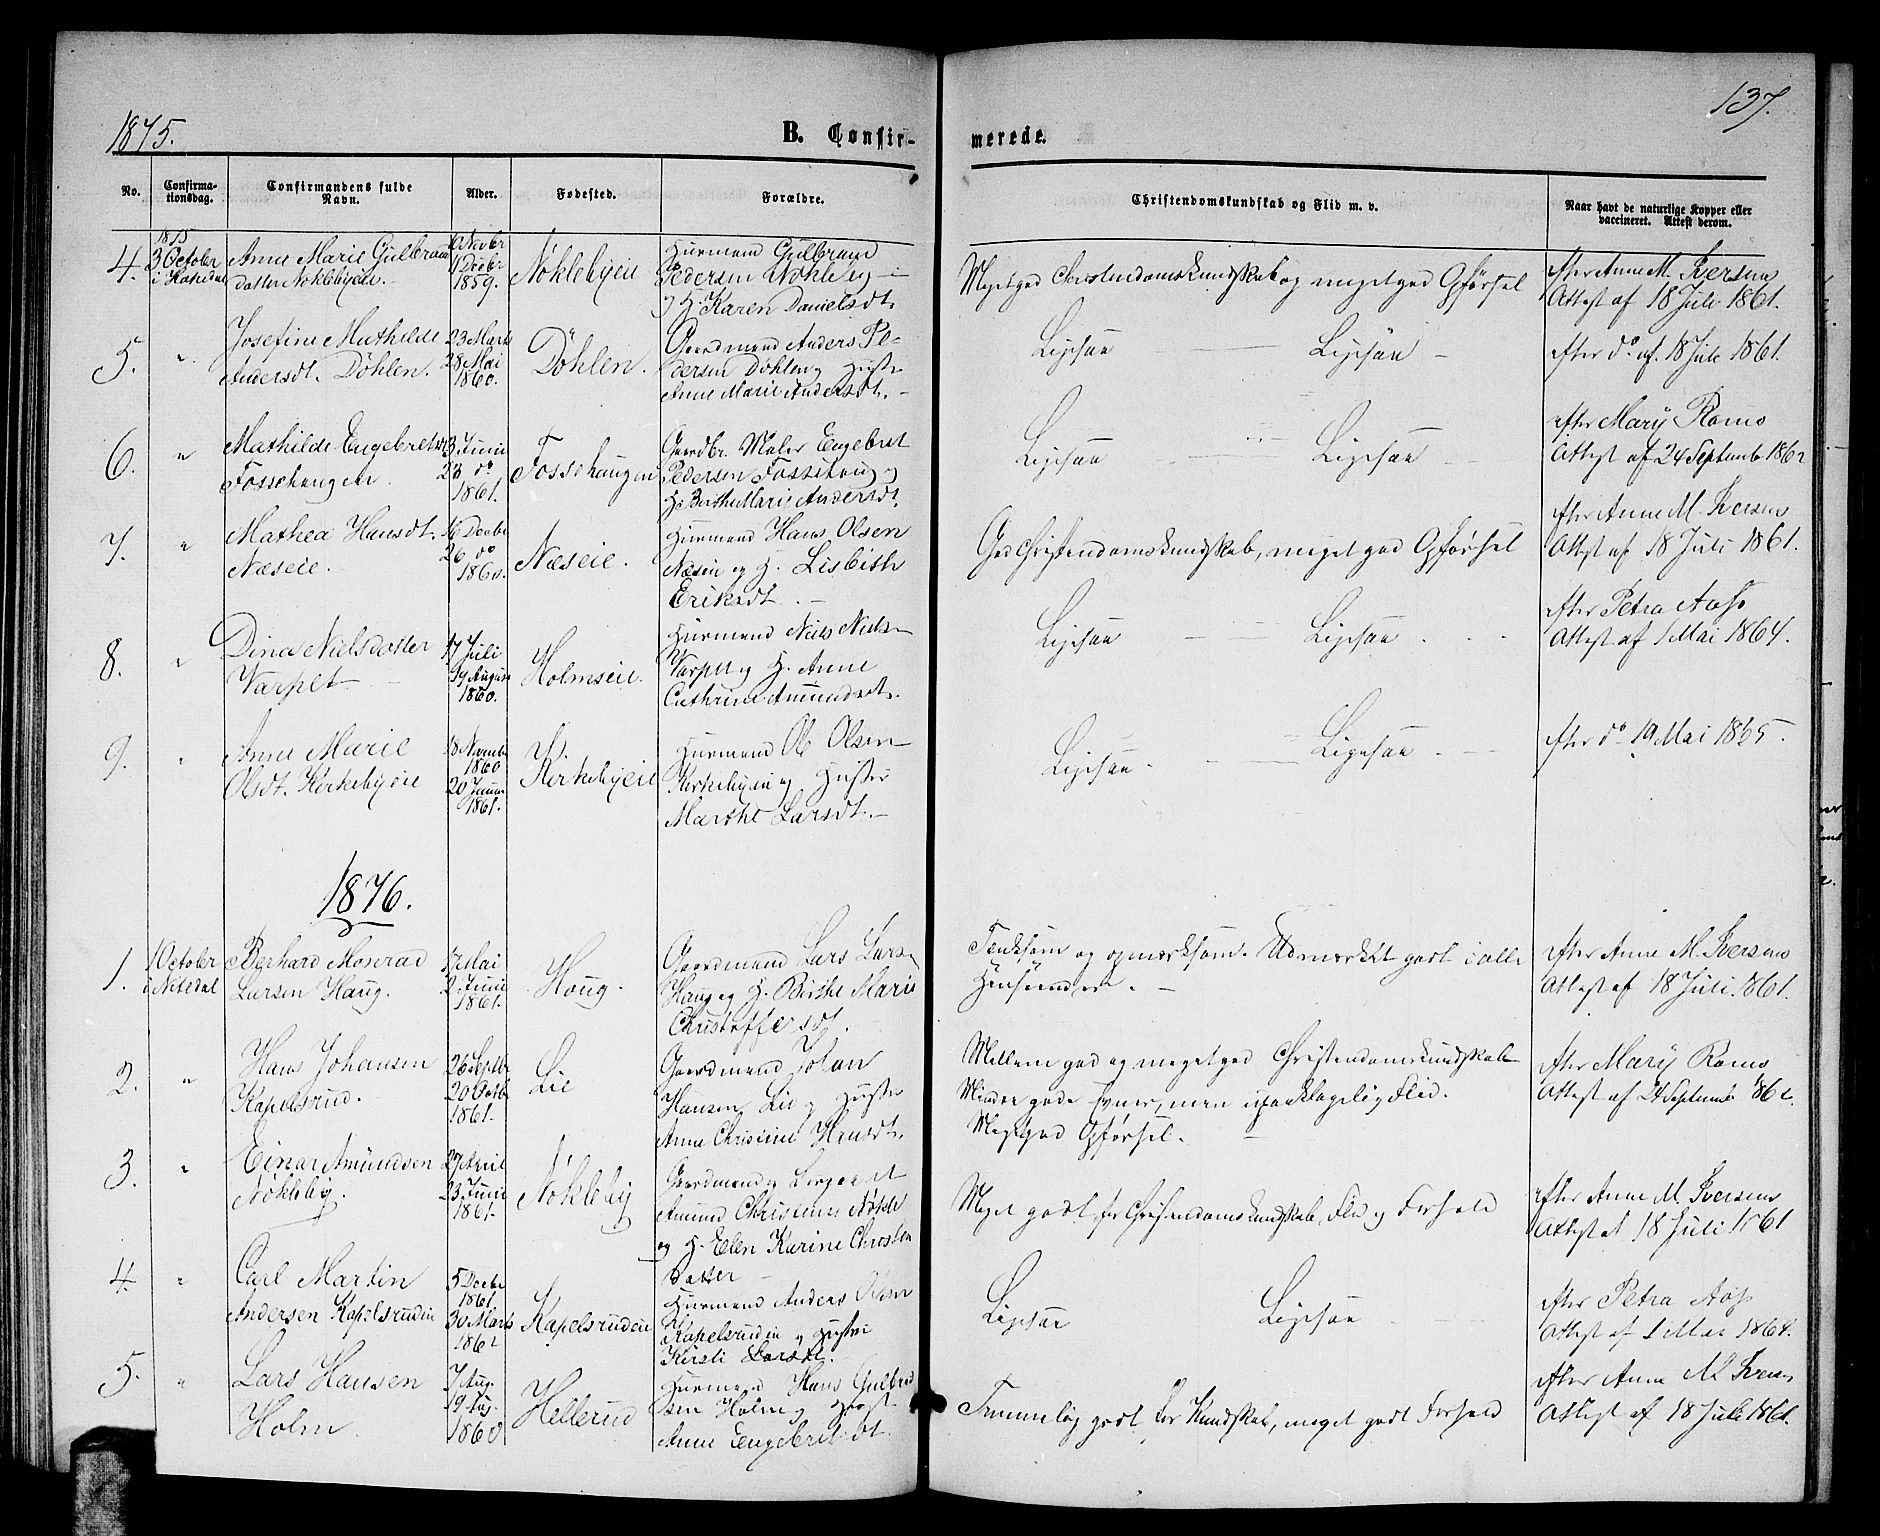 1875.
B. Confir-
merede.
137.
No.
Confirma-
tionsdag.
Confirmandens fulde
Navn.
Alder.
Fødested.
Forældre.
Christendomskundskab og Flid m. v.
Naar havt de naturlige Kopper eller
vaccineret. Attest derom.
4.
1875
3 October
i Hakedal
Anne Marie Gulbrand
datter Nøklebyeie.
6 Novbr
11 Decbr
1859.
Nøklebyeie
Huusmand Gulbrand
Pedersen Nøkleby-
og H. Karen Danielsdt.
Meget god Christendomskundskab og meget god Opførsel
efter Anne M. Iversens
Attest af 18 Juli 1861.
5.
"
Josefine Mathilde
Andersdt. Döhlen.
23 Marts
28 Mai
1860.
Döhlen.
Gaardmand Anders Pe-
dersen Døhlen og Hustr
Anne Marie Andersdt.
Ligesaa Ligesaa
efter do af 18 Juli 1861.
6.
"
Mathilde Engebretsdt
Fossehaugen.
3 Juni
23 do
1861.
Fossehaugen
Gaardbr. Maler Engebret
Pedersen Fossehaug og
H. Berthe Marie Andersdt.
Ligesaa Ligesaa
efter Mary Roms
Attest af 24 Septemb 1862
7.
"
Mathea Hansdt.
Næseie.
16 Decbr
26 do
1860.
Næseie.
Huusmand Hans Olsen
Næseie og H. Lisbeth
Eriksdt.
God Christendomskundskab, meget god Opførsel
efter Anne M. Iversens
Attest af 18 Juli 1861.
8.
"
Dina Nielsdatter
Varpet
17 Juli
19 August
1860.
Holmseie.
Huusmand Niels Niels-
Varpet og H. Anne
Cathrine Amundsdt.
Ligesaa Ligesaa
efter Petra Aas's
Attest af 1 Mai 1864.
9.
"
Anne Marie
Olsdt. Kirkebyeie
18 Novemb
1860
20 Januar
1861.
Kirkebyeie
Huusmand Ole Olsen
Kirkebyeie og Hustru
Marthe Larsdt.
Ligesaa Ligesaa
efter do 19 Mai 1865.
1876.
1.
1 October
i Nitedal
Berhard Monrad
Larsen Haug.
17 Mai
2 Juni
1861.
Houg.
Gaardmand Lars Lars-
Haug og H. Birthe Marie
Christoffersdt.
Tænksom og opmærksom. Udmærket godt i alle
Henseender.
efter Anne M. Iversens
Attest af 18 Juli 1861.
2.
"
Hans Johansen
Kapelsrud.
26 Septbr
20 Octb
1861.
Lie
Gaardmand Johan
Hansen Lie og Hustr
Anne Christine Hansdt.
Mellem god og meget god Christendomskundskab
Mindre gode Evner, men upaaklagelig Flid.
Meget god Opførsel.
efter Mary Roms
Attest af 24 Septemb 1862.
3.
"
Einar Amundsen
Nøkleby.
27 April
23 Juni
1861.
Nøkleby
Gaardmand og Lærer
Amund Christensen Nøkle
og H. Elen Karine Christen
datter
Meget godt for Christendomskundskab, Flid og Forhold
efter Anne M. Iversens
Attest af 18 Juli 1861
4
"
Carl Martin
Andersen Kapelsrudeie
5 Decbr
1861.
30 Marts
1862
Kapelsrudeie
Huusmand Anders Olsen
Kapelsrudeie og Hustru
Kirsti Larsdt.
Ligesaa Ligesaa
efter Petra Aas's
Attest af 1 Mai 1864.
5.
"
Lars Hansen
Holm
7 Aug.
19 Aug.
1860
Hellerud
Huusmand Hans Gulbrand
sen Holm og Hust-
Anne Engebretsdt.
Temmelig godt for Kundskab, meget godt Forhold
efter Anne M. Ivers
Attest af 18 Juli 1861.